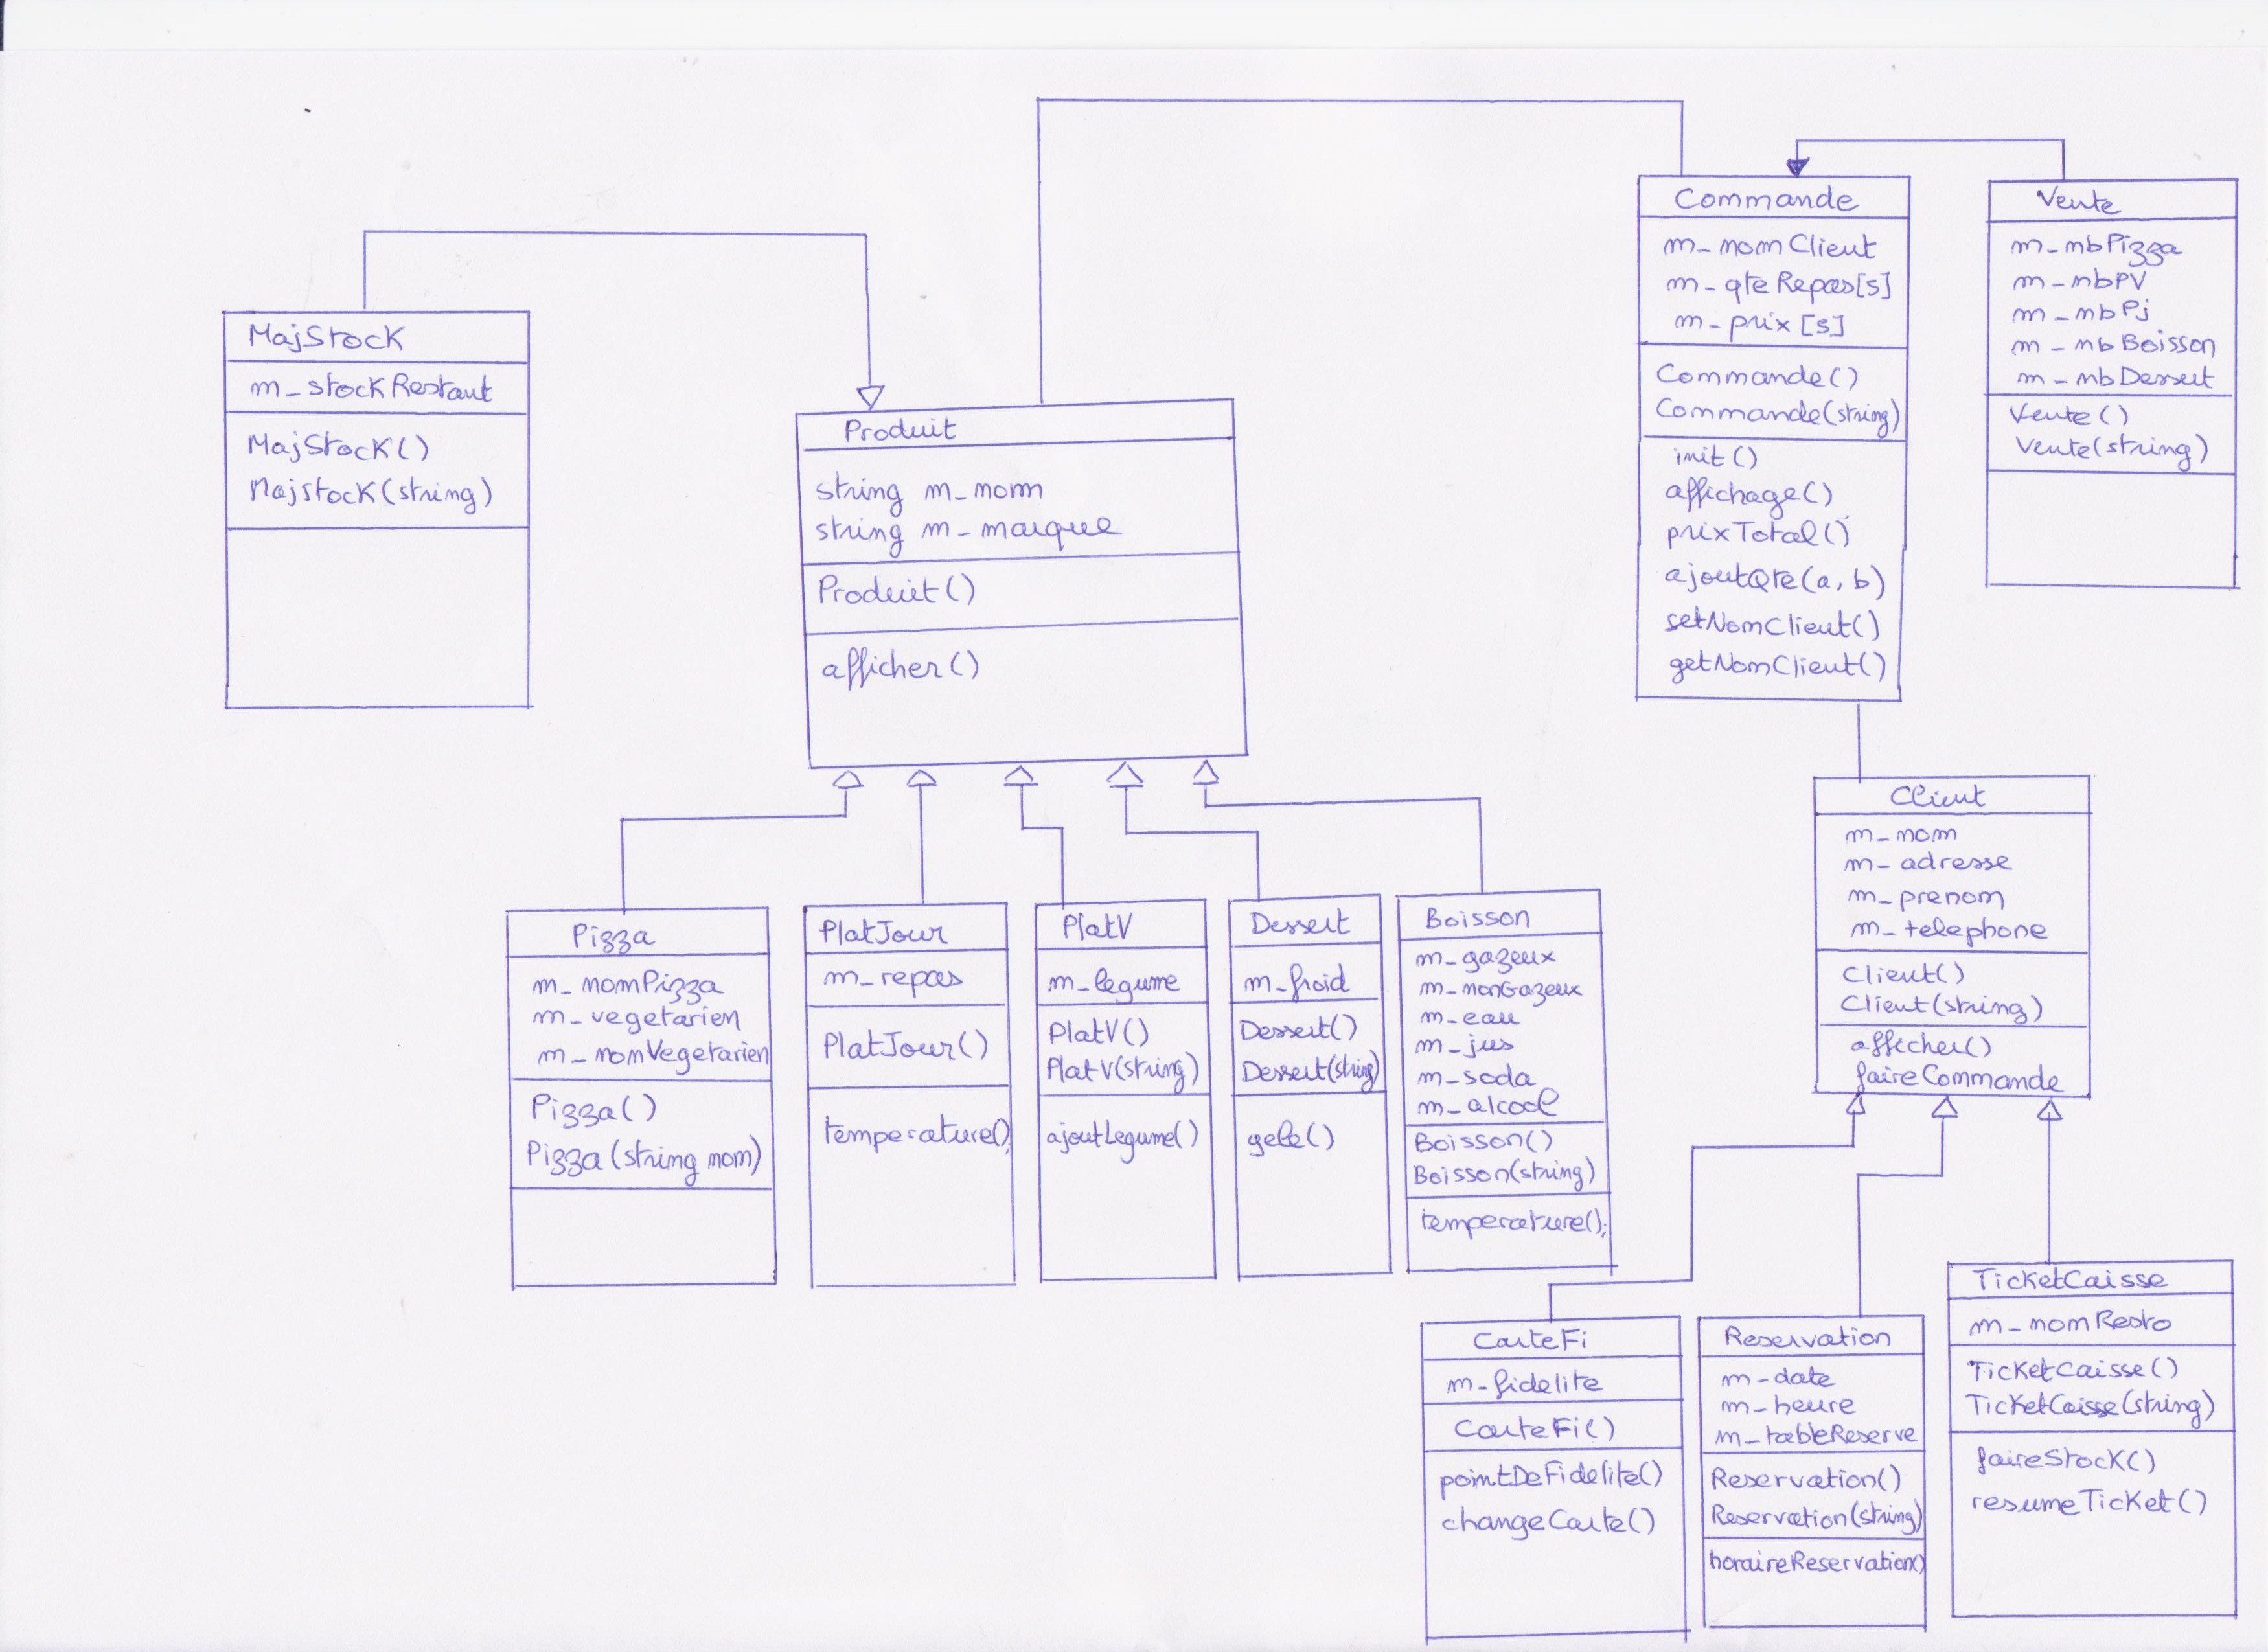 MajStock
m_stockRestant
MajStock()
MajStock(string)
Produit
string m_nom
string m_marque
Produit()
afficher()
Commande
m_nomClient
m_qteRepas[5]
m_prix[5]
Commande()
Commande(string)
init()
affichage()
prixTotal()
ajoutQte(a, b)
setNomClient()
getNomClient()
Vente
m_nbPizza
m_nbPV
m_nbPj
m_nbBoisson
m_nbDessert
Vente()
Vente(string)
Client
m_nom
m_adresse
m_prenom
m_telephone
Client()
Client(string)
afficher()
faireCommande
Pizza
m_nomPizza
m_vegetarien
m_nonVegetarien
Pizza()
Pizza(string nom)
PlatJour
m_repas
PlatJour()
temperature();
PlatV
m_legume
PlatV()
PlatV(string)
ajoutLegume()
Dessert
m_froid
Dessert()
Dessert(string)
gele()
Boisson
m_gazeux
m_nonGazeux
m_eau
m_jus
m_soda
m_alcool
Boisson()
Boisson(string)
temperature();
CarteFi
m_fidelite
CarteFi()
pointDeFidelite()
changeCarte()
Reservation
m_date
m_heure
m_tableReserve
Reservation()
Reservation(string)
horaireReservation()
TicketCaisse
m_nomResto
TicketCaisse()
TicketCaisse(string)
faireStock()
resumeTicket()